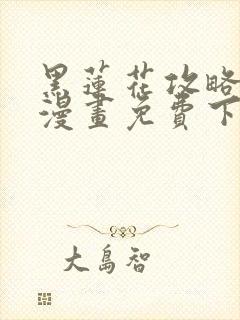 黑蓮花攻略
漫畫免費下
大島智